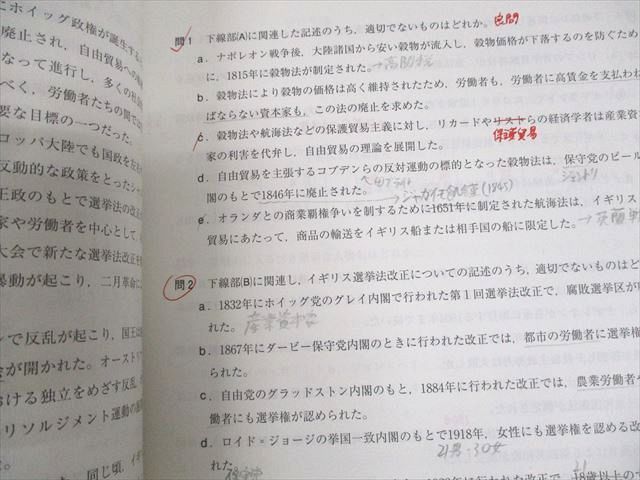 にホイッグ政権が誕生する
廃止され，自由貿易への
なって進行し，多くの社会
べく，労働者たちの間では
要な目標の一つだった。
ロッパ大陸でも国政を左
反動的な政策をとったシャ
王政のもとで選挙法の改正
家や労働者を中心として，
大会で新たな選挙法改正
暴動が起こり，二月革命に
ンで反乱が起こり，国王は
会が開かれた。オーストリ
おける独立をめざす反乱，
リソルジメント運動の
同じ頃，イギ
問1 下線部(A)に関連した記述のうち，適切でないものはどれか。
a．ナポレオン戦争後，大陸諸国から安い穀物が流入し，穀物価格が下落するのを防ぐため
に，1815年に穀物法が制定された。
b．穀物法により穀物の価格は高く維持されたため，労働者も，労働者に高賃金を支払わね
ばならない資本家も，この法の廃止を求めた。
c．穀物法や航海法などの保護貿易主義に対し，リカードやリストらの経済学者は産業資
家の利害を代弁し，自由貿易の理論を展開した。
保護貿易
d．自由貿易を主張するコブデンらの反対運動の標的となった穀物法は，保守党のピール
閣のもとで1846年に廃止された。
→ジャガイモ飢饉(1845)
ジェントリ
e．オランダとの商業覇権争いを制するために1651年に制定された航海法は，イギリス
貿易にあたって，商品の輸送をイギリス船または相手国の船に限定した。
問2 下線部(B)に関連し，イギリス選挙法改正についての記述のうち，適切でないものはど
a．1832年にホイッグ党のグレイ内閣で行われた第1回選挙法改正で，腐敗選挙区が
れた。
産業資本家
b．1867年にダービー保守党内閣のときに行われた改正では，都市の労働者に選挙権
られた。
c．自由党のグラッドストン内閣のもと，1884年に行われた改正では，農業労働者や
働者にも選挙権が認められた。
d．ロイド＝ジョージの挙国一致内閣のもとで1918年，女性にも選挙権を認める改
れた。
21男・30女
保守党
21
行われた改正で，18歳以上の